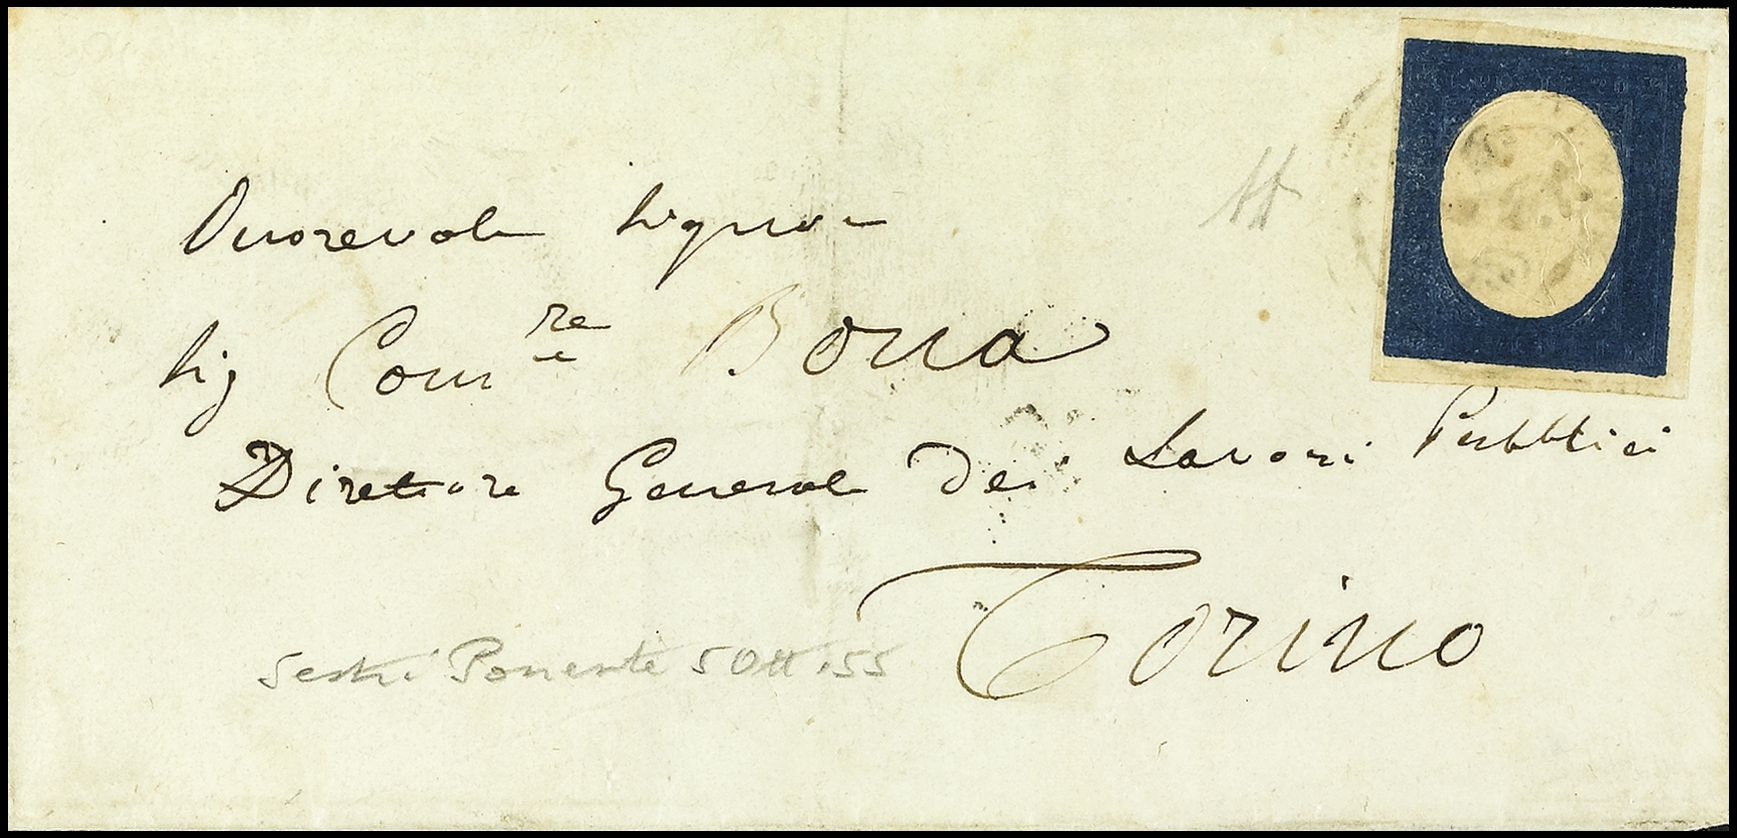 Onorevole Signor
Sig Com.re Bona
Direttore Generale dei Lavori Pubblici
Torino
Sestri Ponente 5 Ott. 55